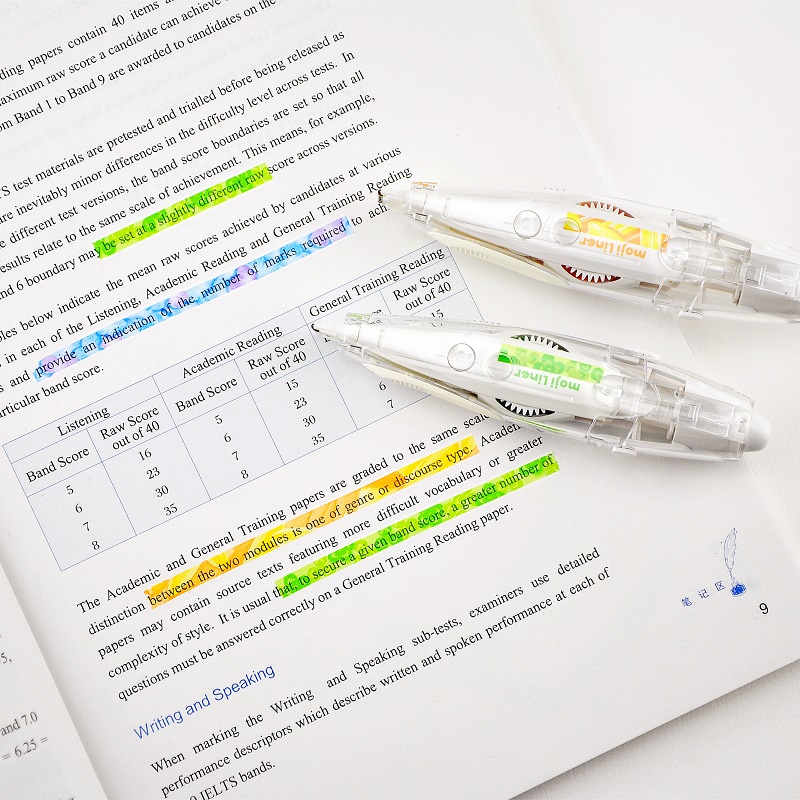 ding papers contain 40 items
aximum raw score a candidate can achieve
om Band 1 to Band 9 are awarded to candidates on the
TS test materials are pretested and trialled before being released as
are inevitably minor differences in the difficulty level across tests. In
e different test versions, the band score boundaries are set so that all
results relate to the same scale of achievement. This means, for example,
nd 6 boundary may be set at a slightly different raw score across versions.
bles below indicate the mean raw scores achieved by candidates at various
in each of the Listening, Academic Reading and General Training Reading
s and provide an indication of the number of marks required to
articular band score.
Listening Academic Reading General Training Reading
Band Score Raw Score out of 40 Band Score Raw Score out of 40 Raw Score out of 40
5 16 5 15 15
6 23 6 23 6
7 30 7 30 7
8 35 8 35
The Academic and General Training papers are graded to the same scale.
distinction between the two modules is one of genre or discourse type.
papers may contain source texts featuring more difficult vocabulary or greater
complexity of style. It is usual that, to secure a given band score, a greater number of
questions must be answered correctly on a General Training Reading paper.
Writing and Speaking
When marking the Writing and Speaking sub-tests, examiners use detailed
performance descriptors which describe written and spoken performance at each of
IELTS bands.
笔记区
9
moji Liner
moji Liner
5,
and 7.0
= 6.25 =